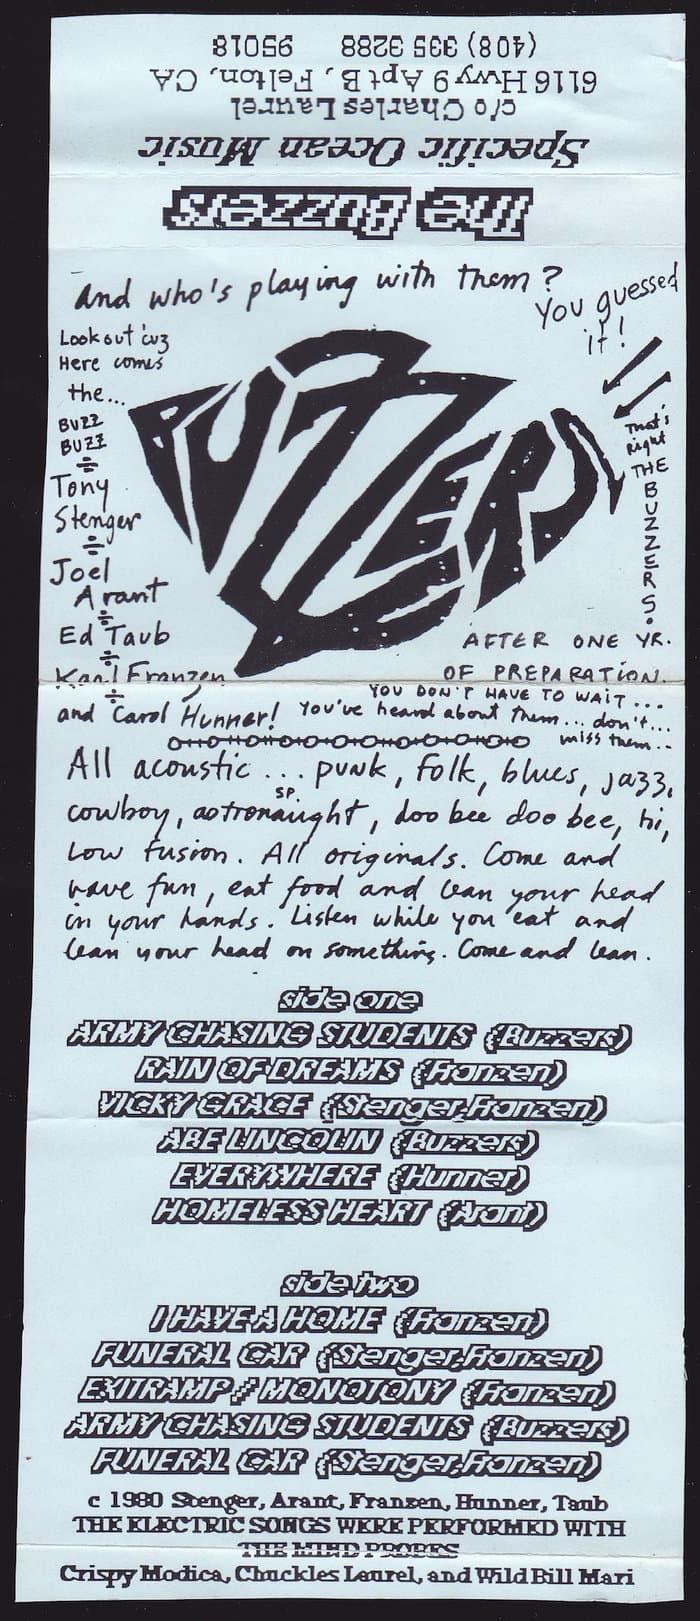 (408) 335 3288 95018
6116 Hwy 9 Apt B, Felton, CA
c/o Charles Laurel
Specific Ocean Music
The Buzzers
And who's playing with them?
You guessed
it!
Look out 'cuz
Here comes
the...
BUZZ
BUZZ
÷
Tony
Stenger
÷
Joel
Arant
÷
Ed Taub
÷
Karl Franzen
÷
and Carol Hunner!
BUZZERS
That's
right
THE
BUZZERS.
AFTER ONE YR.
OF PREPARATION.
YOU DON'T HAVE TO WAIT...
You've heard about them... don't...
miss them...
All acoustic ... punk, folk, blues, jazz,
sp.
cowboy, astronaught, doo bee doo bee, hi,
Low fusion. All originals. Come and
have fun, eat food and lean your head
in your hands. Listen while you eat and
lean your head on something. Come and lean.
side one
ARMY CHASING STUDENTS (Buzzers)
RAIN OF DREAMS (Franzen)
VICKY GRACE (Stenger,Franzen)
ABE LINCOLIN (Buzzers)
EVERYWHERE (Hunner)
HOMELESS HEART (Arant)
side two
I HAVE A HOME (Franzen)
FUNERAL CAR (Stenger,Franzen)
EXITRAMP / MONOTONY (Franzen)
ARMY CHASING STUDENTS (Buzzers)
FUNERAL CAR (Stenger,Franzen)
c 1980 Stenger, Arant, Franzen, Hunner, Taub
THE ELECTRIC SONGS WERE PERFORMED WITH
THE MIND PROBES
Crispy Modica, Chuckles Laurel, and Wild Bill Mari